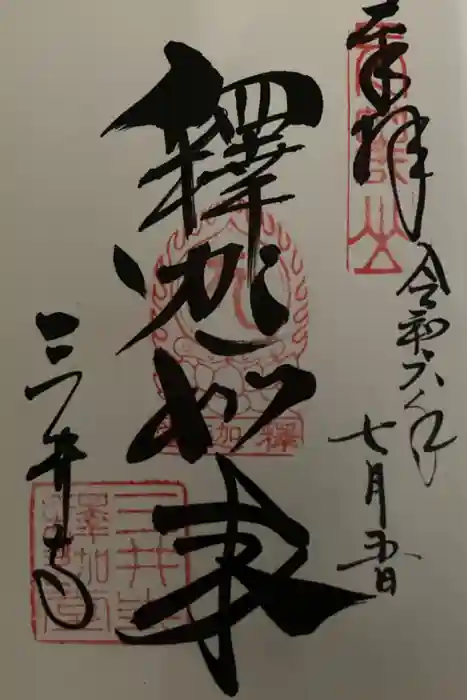 奉拝
令和六年
七月五日
釋迦如来
三井寺
長等山
釋迦
三井寺
釋迦堂